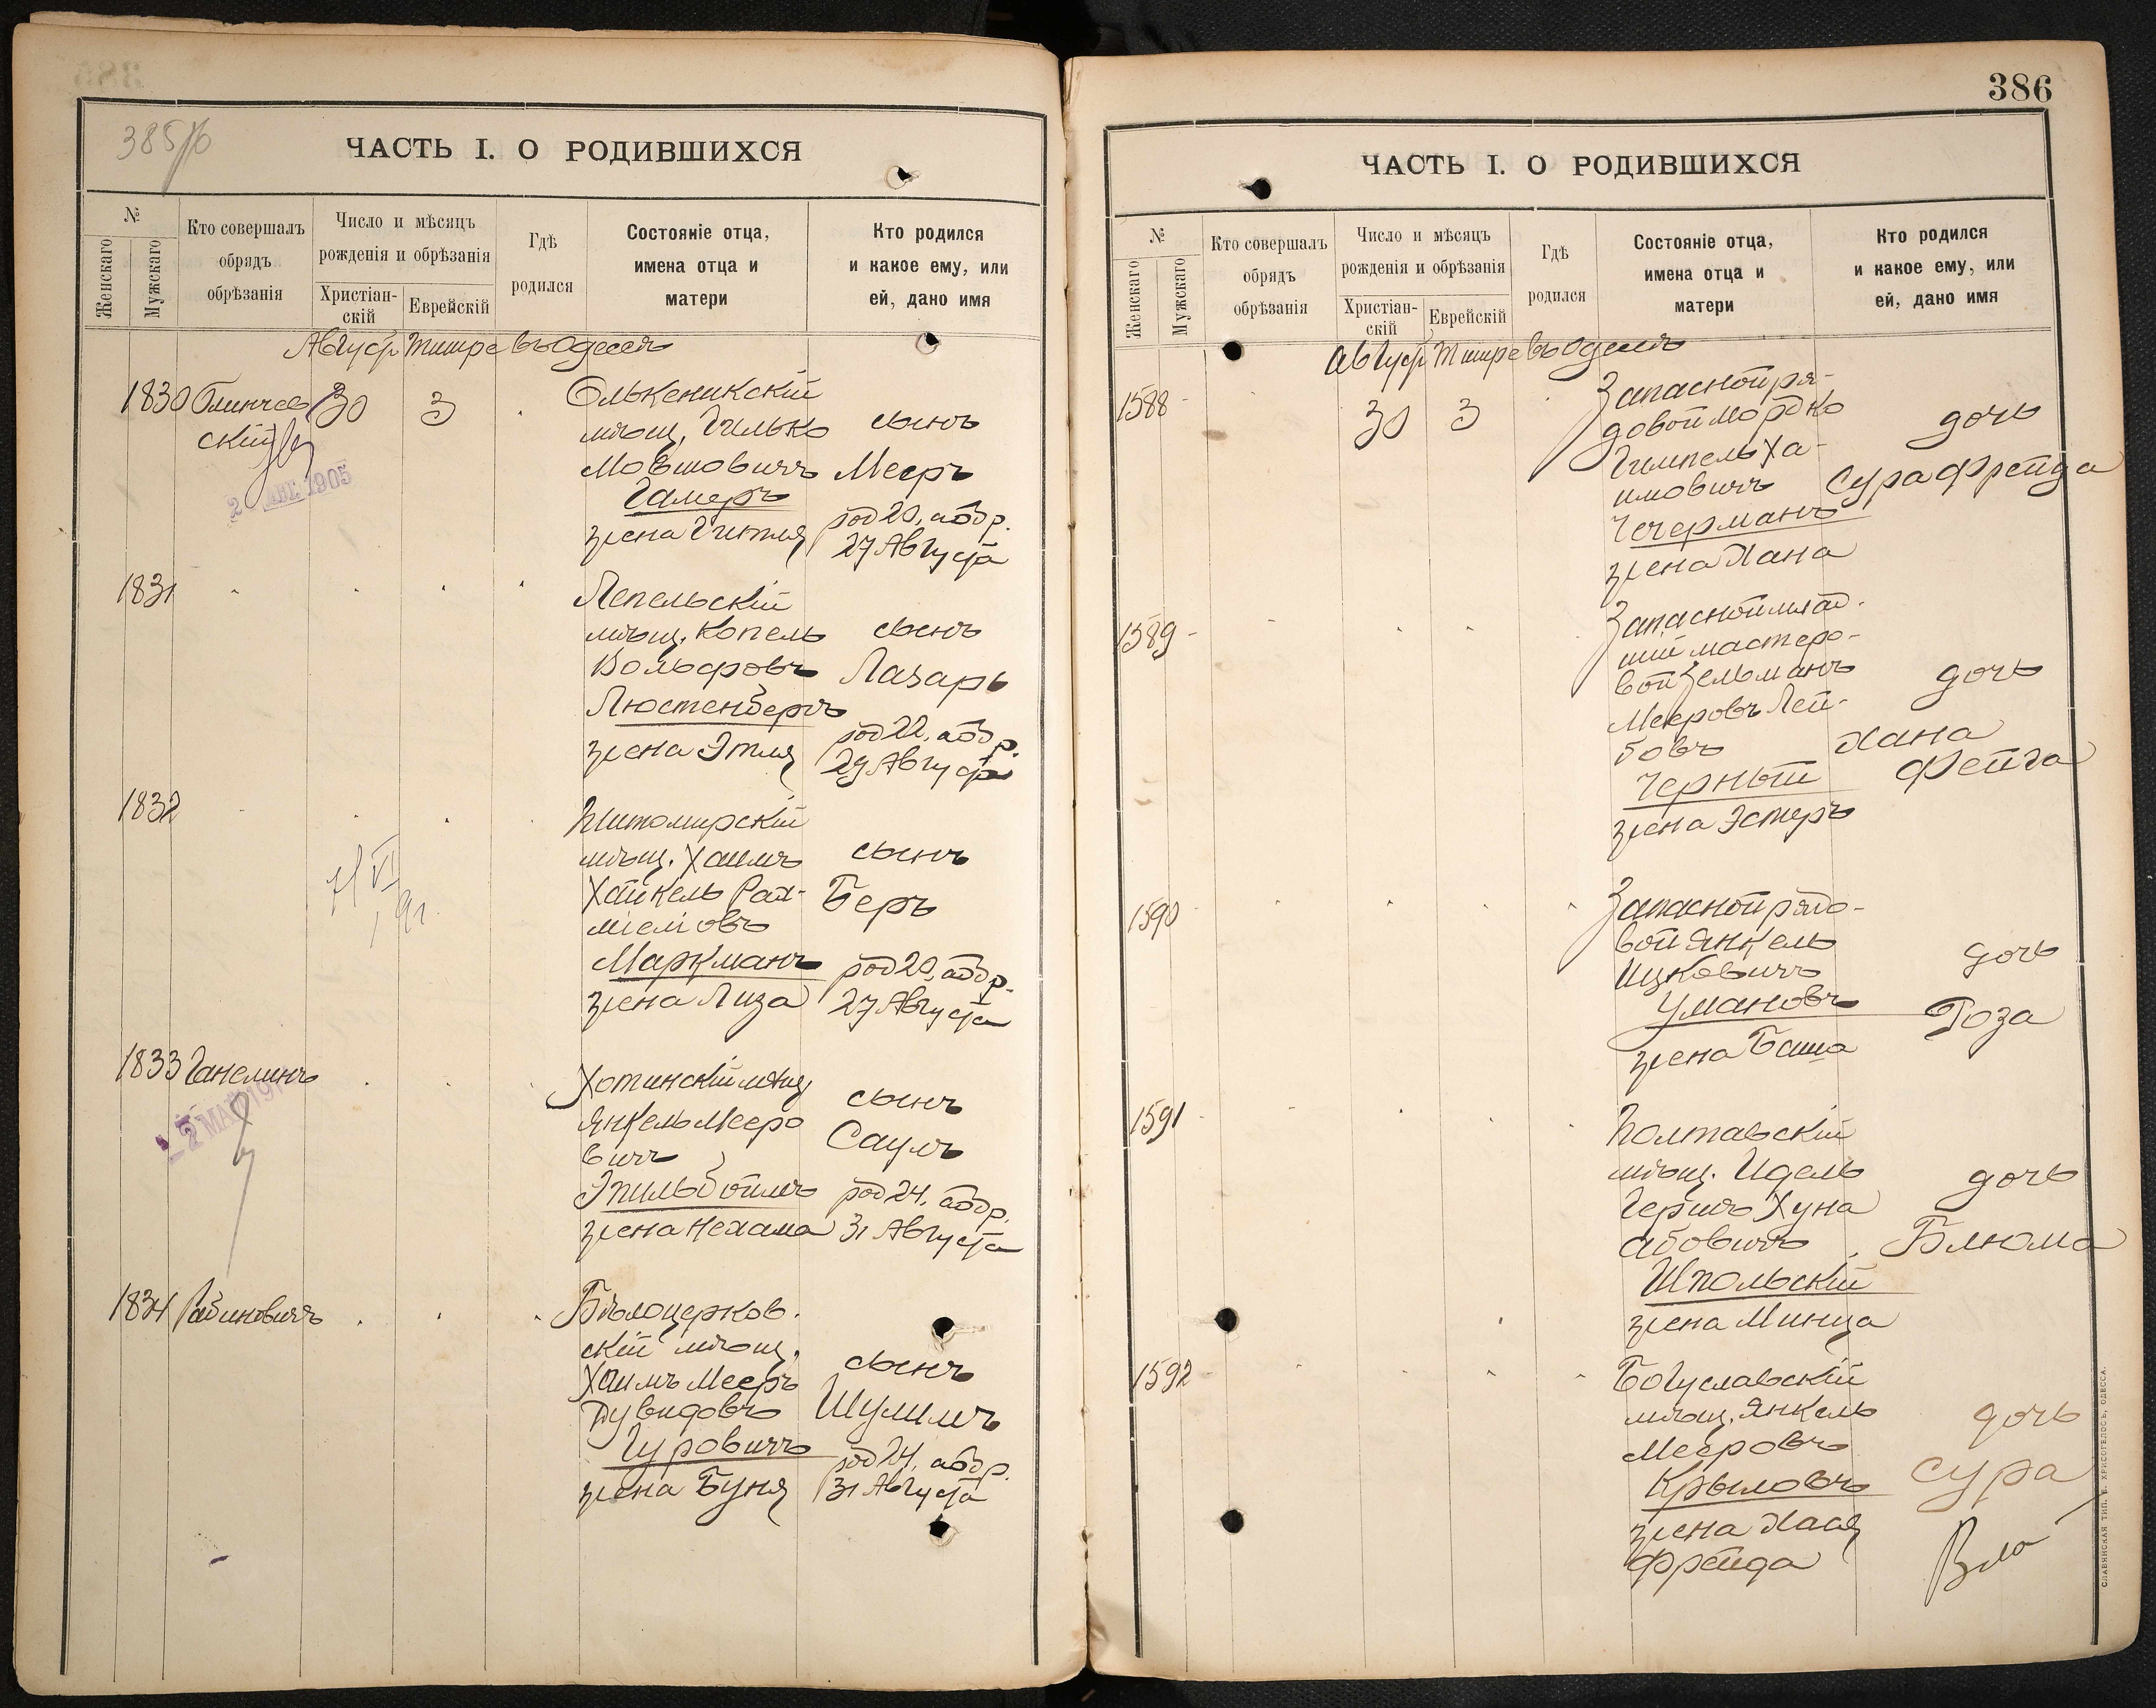 385/б
ЧАСТЬ I. О РОДИВШИХСЯ
№
Женскаго
Мужскаго
Кто совершалъ
обрядъ
обрѣзанія
Число и мѣсяцъ
рожденія и обрѣзанія
Христіан-
скій
Еврейскій
Гдѣ
родился
Состояніе отца,
имена отца и
матери
Кто родился
и какое ему, или
ей, дано имя
Август Тишре въ Одессѣ
1830
30
3
Олькеникскій
мѣщ. Гилько
Мовшовичъ
Гамеръ
жена Гитля
сынъ
Мееръ
род 20, абр.
27 Августа
2 АВГ. 1905
1831
Лепельскій
мѣщ. Копель
Вольфовъ
Люстенбергъ
жена Этля
сынъ
Лазарь
род 22, обр.
29 Августа
1832
Житомирскій
мѣщ. Хаимъ
Хайкель Рах-
міеліовъ
Маркманъ
жена Лиза
сынъ
Беръ
род 20, обр.
27 Августа
1833 Ганелинъ
Хотинскій мѣщ
Янкель Мееро
вичъ
Эпильбоймъ
жена Нехама
сынъ
Саулъ
род 24, обр.
31 Августа
2 МАЙ 191
1834 Рабиновичъ
Бѣлоцерков.
скій мѣщ.
Хаимъ Мееръ
Дувидовъ
Гуровичъ
жена Буня
сынъ
Шулимъ
род 24, обр.
31 Августа
386
ЧАСТЬ I. О РОДИВШИХСЯ
№
Женскаго
Мужскаго
Кто совершалъ
обрядъ
обрѣзанія
Число и мѣсяцъ
рожденія и обрѣзанія
Христіан-
скій
Еврейскій
Гдѣ
родился
Состояніе отца,
имена отца и
матери
Кто родился
и какое ему, или
ей, дано имя
Август Тишре въ Одессѣ
1588
30
3
Запасной ря-
довой Мордко
Гимпель Ха-
имовичъ
Чечерманъ
жена Хана
дочь
Сура Фрейда
1589
Запасной млад.
шій мастеро-
вой Зельманъ
Мееровъ Лей-
бовъ
Черный
жена Эстеръ
дочь
Хана
Фейга
1590
Запасной рядо-
вой Янкель
Ицковичъ
Умановъ
жена Баша
дочь
Роза
1591
Полтавскій
мѣщ. Идель
Гершъ Хуна
Абовичъ
Шпольскій
жена Минца
дочь
Блюма
1592
Богуславскій
мѣщ. Янкель
Мееровъ
Крыловъ
жена Хася
Фрейда
дочь
Сура
СЛАВЯНСКАЯ ТИП. Е. ХРИСОГЕЛОСЪ, ОДЕССА.